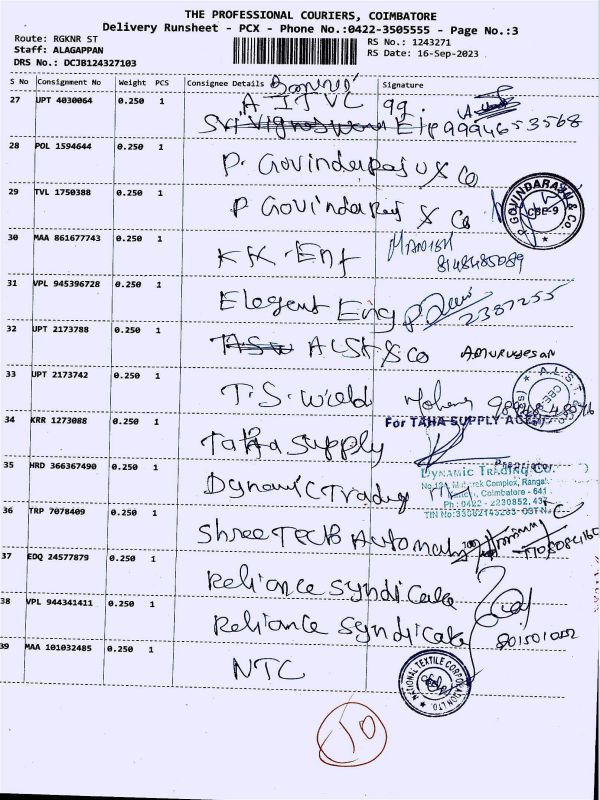 THE PROFESSIONAL COURIERS, COIMBATORE
Delivery Runsheet - PCX - Phone No.:0422-3505555 - Page No.:3
Route: RGKNR ST
Staff: ALAGAPPAN
DRS No.: DCJB124327103
RS No.: 1243271
RS Date: 16-Sep-2023
S No Consignment No Weight PCS Consignee Details Signature
27 UPT 4030064 0.250 1 A ITVC 99.
Sri Eng 9994653568
28 POL 1594644 0.250 1 P. Govindaraju & Co
29 TVL 1750388 0.250 1 P Govindaraj & Co
P GOVINDARAJU & Co. CBE-9
30 MAA 861677743 0.250 1 KK. Enf
8148485089
31 VPL 945396728 0.250 1 Elegent Eng 2387255
32 UPT 2173788 0.250 1 ALST & Co Amurugesan
33 UPT 2173742 0.250 1 T.S. World Mohan
A.L.S.T.
34 KRR 1273088 0.250 1 Taha Supply
For TAHA SUPPLY
35 HRD 366367490 0.250 1 Dynamic Trading
DYNAMIC TRADING CO.
Complex, Rangai
Coimbatore - 641
Ph : 0422 - 2230852, 437
36 TRP 7078409 0.250 1 Shree Tech Automat
37 EDQ 24577879 0.250 1 Reliance Syndicate
38 VPL 944341411 0.250 1 Reliance Syndicate
39 MAA 101032485 0.250 1 NTC
NATIONAL TEXTILE CORPORATION LTD.
10